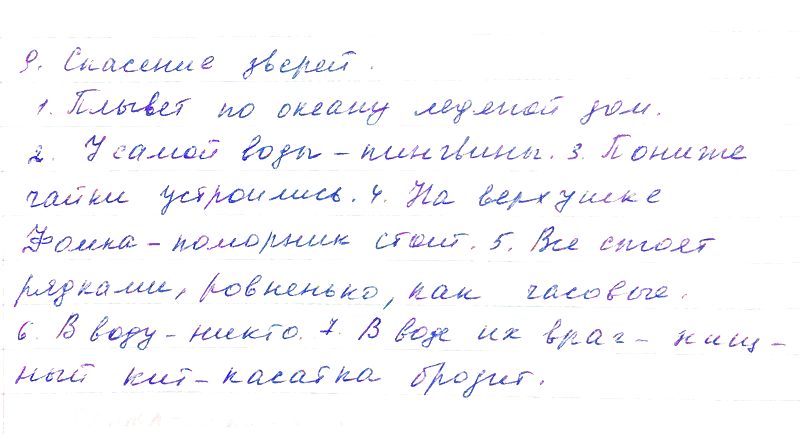 9. Спасение зверей.
1. Плывет по океану ледяной дом.
2. У самой воды - пингвины. 3. Пониже
чайки устроились. 4. На верхушке
Фомка - поморник стоит. 5. Все стоят
рядками, ровненько, как часовые.
6. В воду - никто. 7. В воде их враг - хищ-
ный кит - касатка бродит.